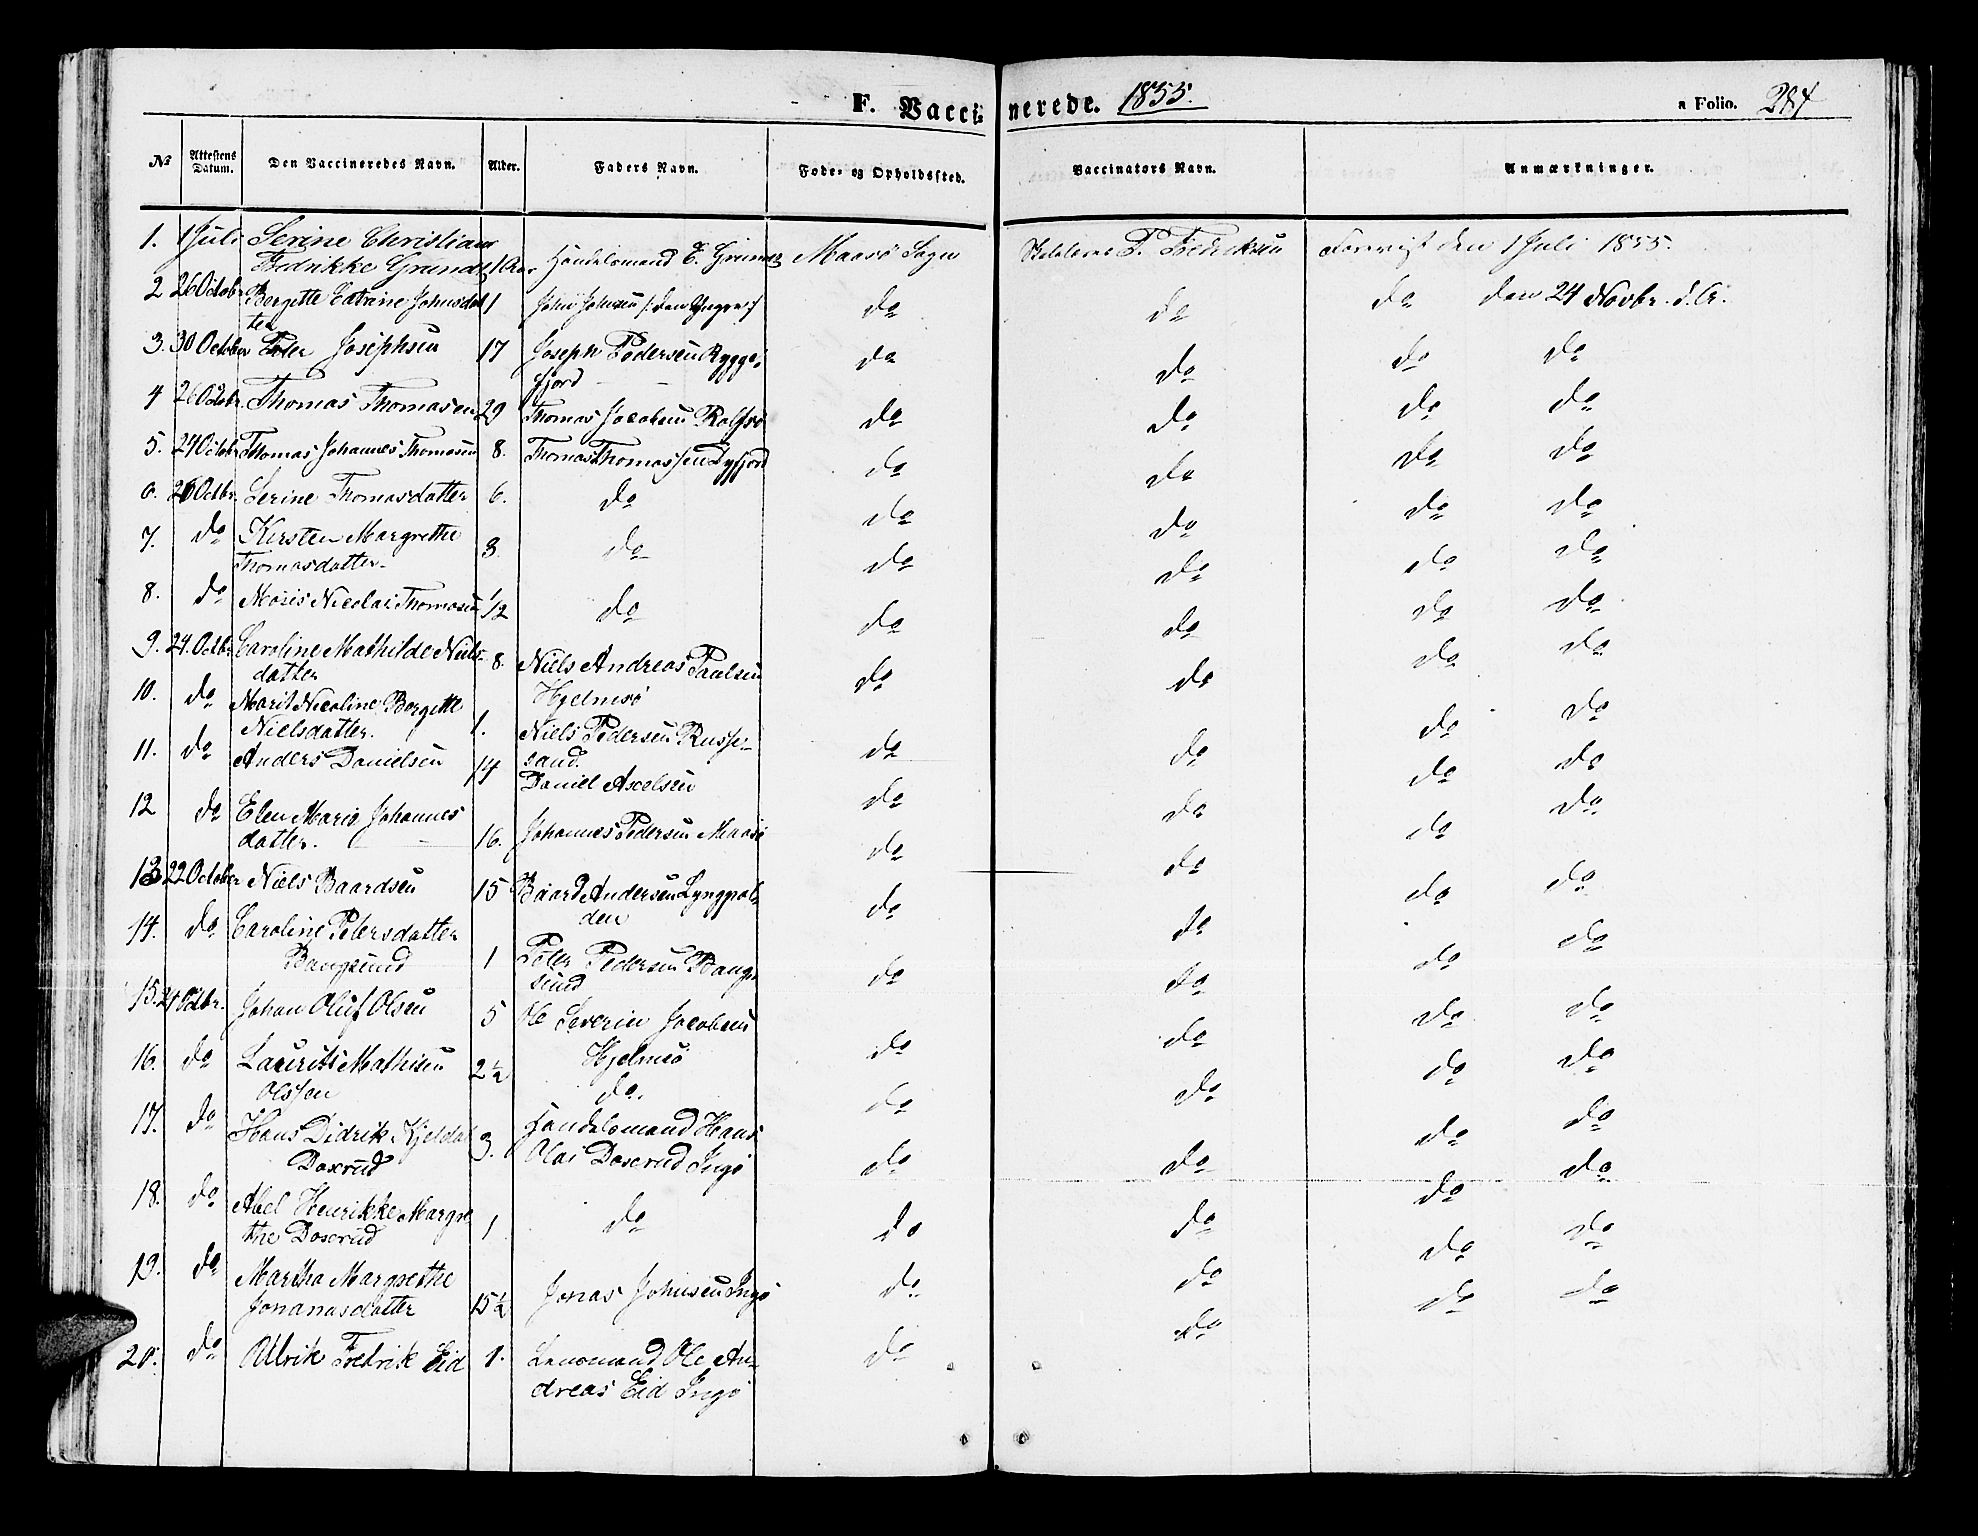 F. Vaccinerede. 1855.
a Folio. 284
No Attestens Datum. Den Vaccineredes Navn. Alder. Faders Navn. Føde- og Opholdssted. Vaccinators Navn. Anmærkninger.
1. 1 Juli Serine Christiane
Fredrikke Grundt 1 Aar Handelsmand E. Grundt Maasø Sogn P. Fredriksen Foreviist den 1 Juli 1855.
2 26 Octobr Bergitte Catrine Johnsdat
ter 1 John Johnsen /: den Yngre :/ do do do den 24 Novbr. d. A.
3. 30 October Peter Josephsen 17 Joseph Pedersen Rygge-
fjord do do do do
4 26 Octbr. Thomas Thomasen 29 Thomas Jacobsen Rolfsø do do do do
5. 24 Octobr Thomas Johannes Thomasen 8. Thomas Thomassen Tyfjord do do do do
6. 26 Octbr. Serine Thomasdatter 6. do do do do do
7. do Kirsten Margrethe
Thomasdatter 3. do do do do do
8. do Moses Nicolai Thomasen 1/2 do do do do do
9. 24. Octbr Caroline Mathilde Niels-
datter 8. Niels Andreas Paulsen
Hjelmsø do do do do
10. do Marit Nicoline Bergitte
Nielsdatter. 1. Niels Pedersen Russe-
sund. do do do do
11. do Anders Danielsen 14 Daniel Axelsen do do do do
12 do Elen Marie Johannes
datter. 16. Johannes Pedersen Maasø do do do do
13 22 October Niels Baardsen 15 Baard Andersen Lyngpol-
den do do do do
14. do Caroline Petersdatter
Bangsund 1 Peter Pedersen Bang-
sund do do do do
15. 24 Octbr. Johan Oluf Olsen 5 Ole Severin Jacobsen
Hjelmsø do do do do
16. do Laurits Mathisen
Olssen 2 1/2 do. do do do do
17. do Hans Didrik Kjeldal
Doxrud 3. Handelsmand Hans
Olai Doxerud Ingø do do do do
18. do Abel Henrikke Margre
the Doxrud 1 do do do do do
19. do Martha Margrethe
Jonanasdatter 15 1/2 Jonas Johnsen Ingø do do do do
20. do Ulrik Fredrik Eid 1. Lensmand Ole An-
dreas Eid Ingø do do